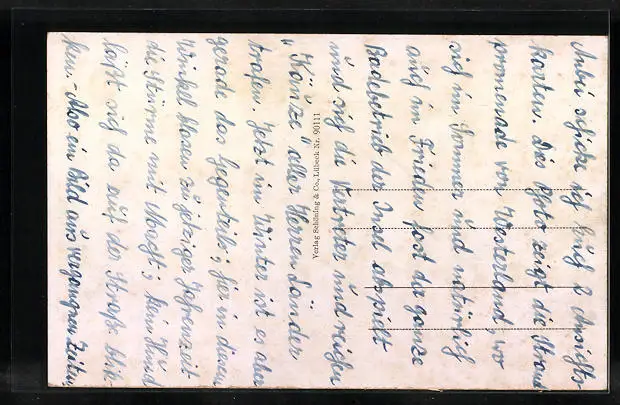 Anbei schicke ich Euch 2 Ansichts
karten. Das Photo zeigt die Strand
promenade von Westerland, wo
sich im Sommer und natürlich
auch im Frieden fast der ganze
Badebetrieb der Insel abspielt
und sich die Vertreter und reichen
"Käuze" aller Herren Länder
trafen. Jetzt im Winter ist es aber
gerade das Gegenteil; hier in diesen
Winkel blasen zu jetziger Jahreszeit
die Stürme mit Macht; kein Hund
läßt sich da auf der Straße blik-
ken. - Also ein Bild aus vergangenen Zeiten.
Verlag Schöning & Co., Lübeck Nr. 90111